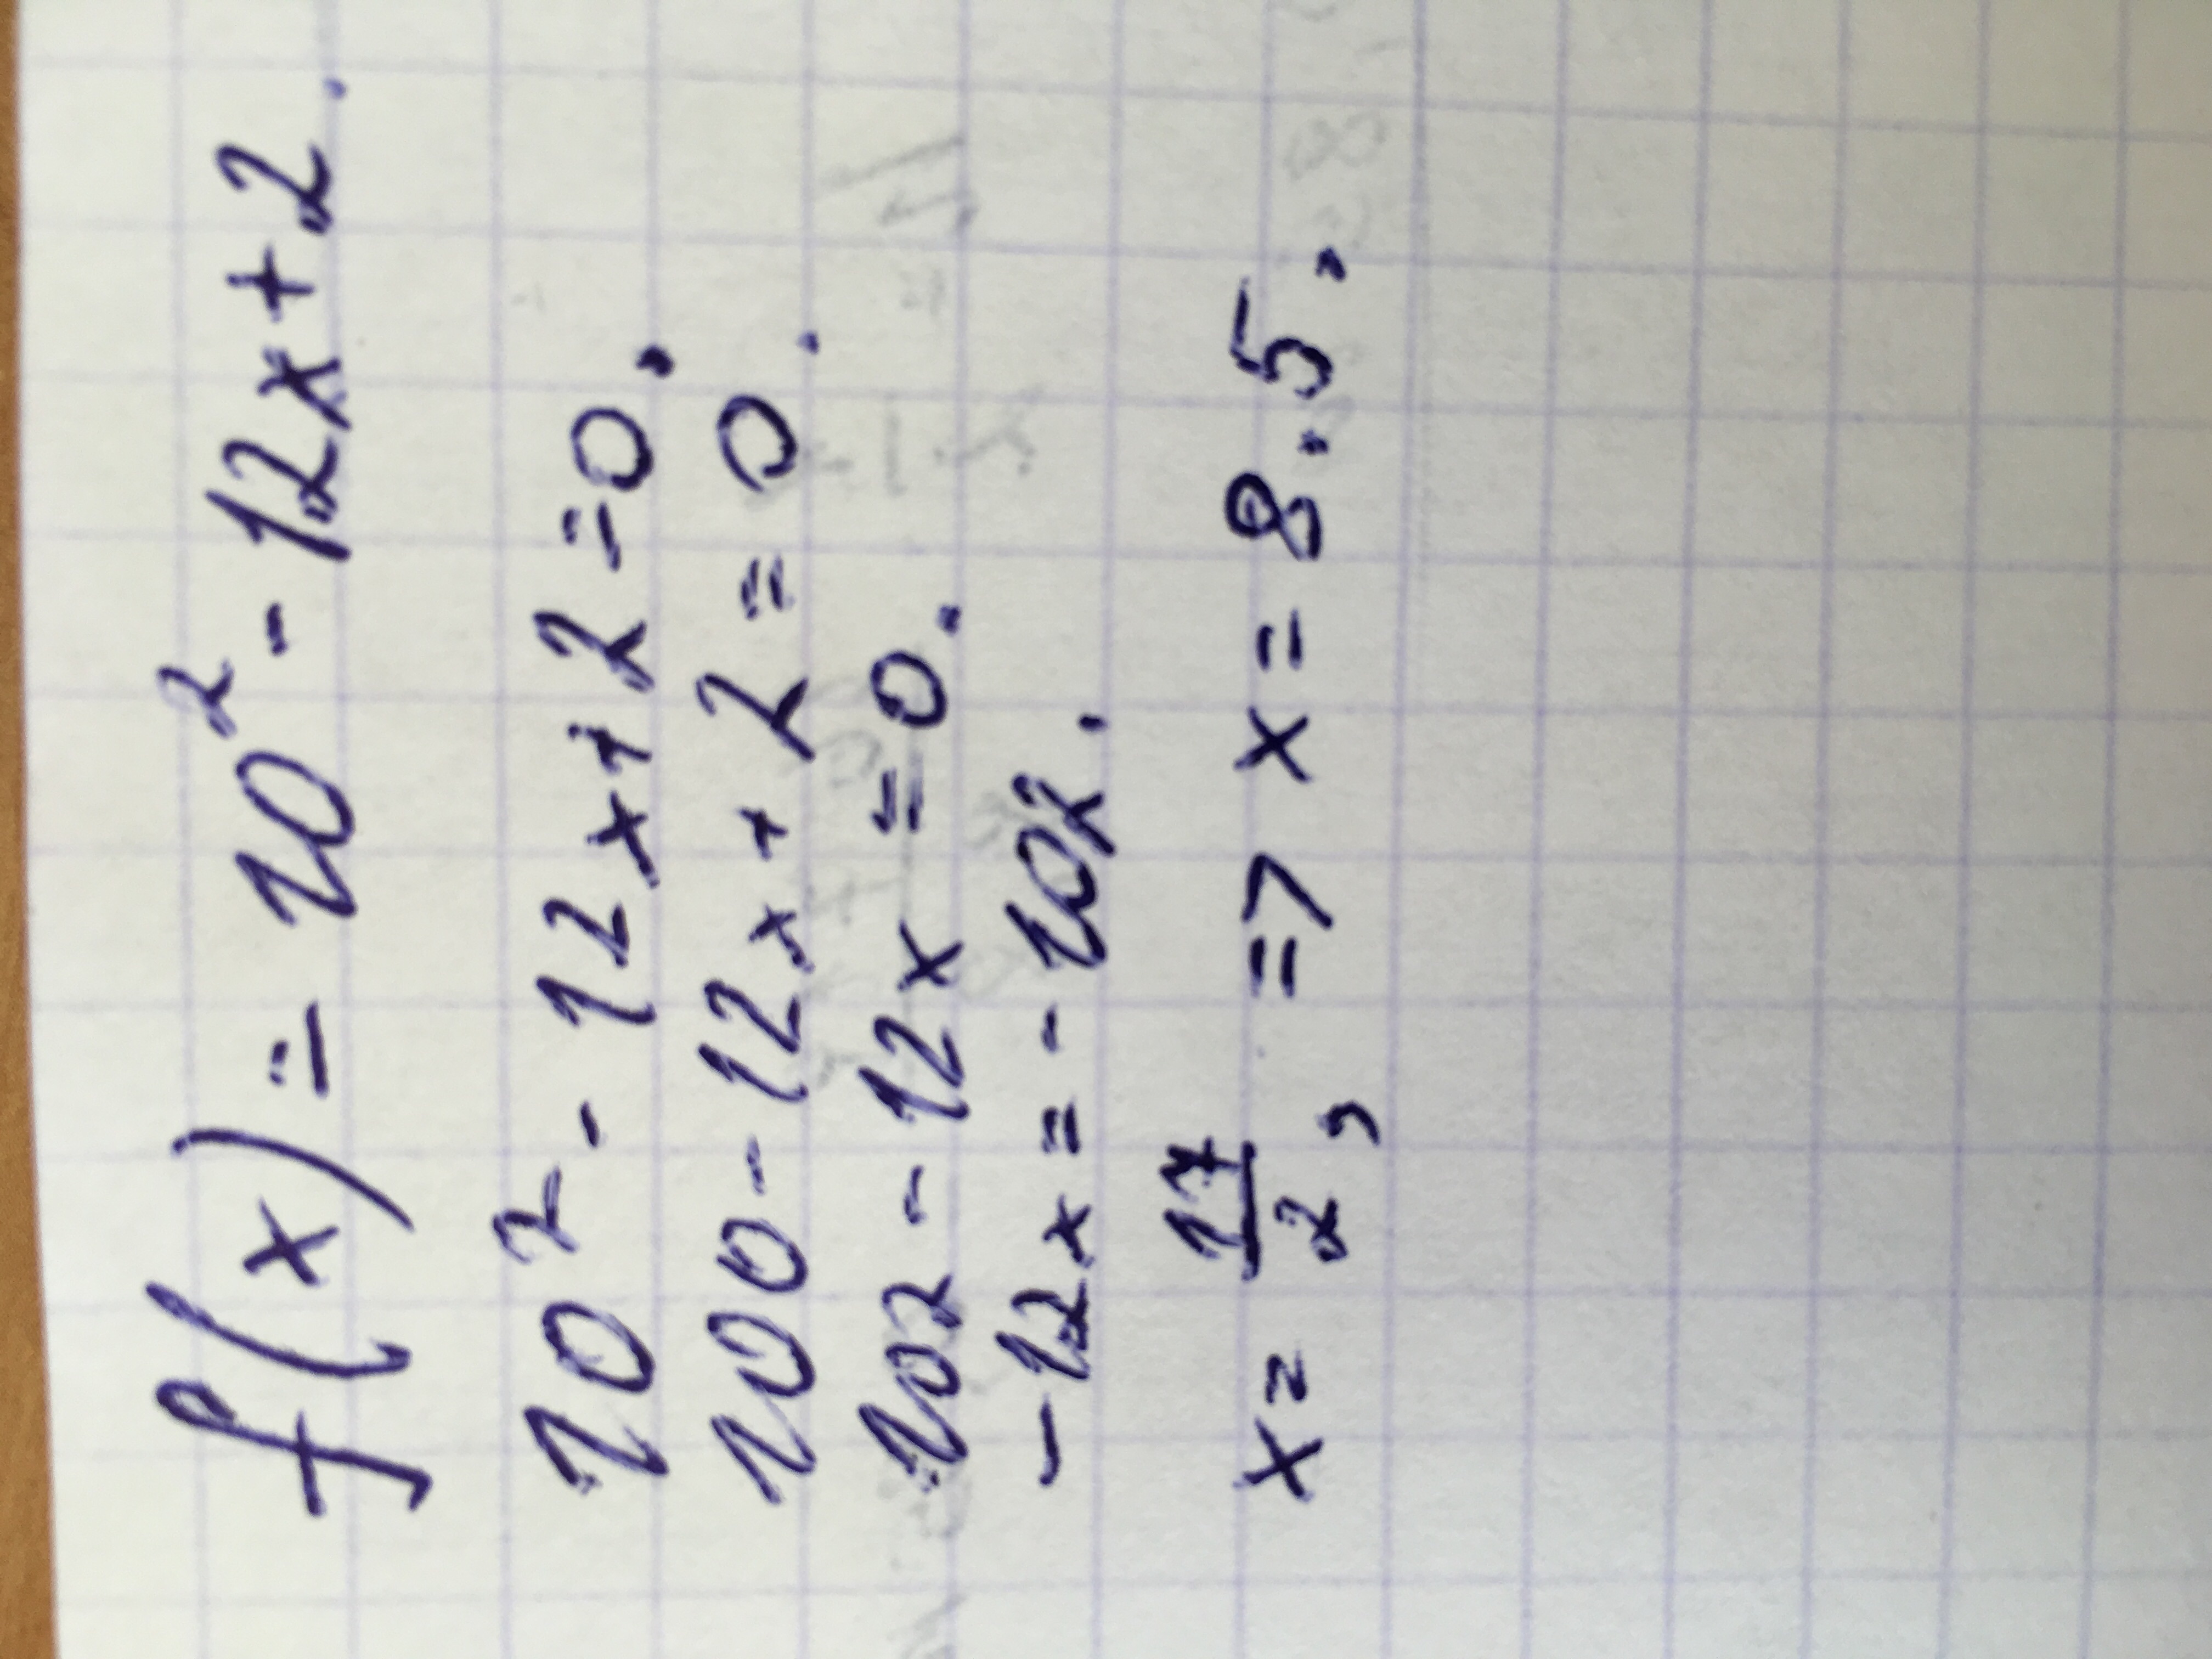 f(x) = 10² - 12x + 2.
10² - 12x + 2 = 0.
100 - 12x + 2 = 0.
102 - 12x = 0.
-12x = -102.
x = 17/2, => x = 8.5.